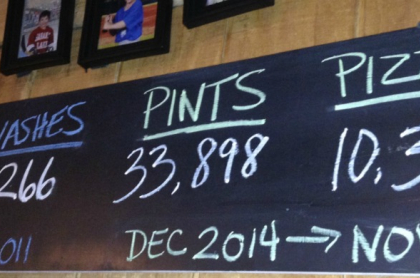 WASHES PINTS PIZ
266 33,898 10,3
011 DEC 2014 → NOV